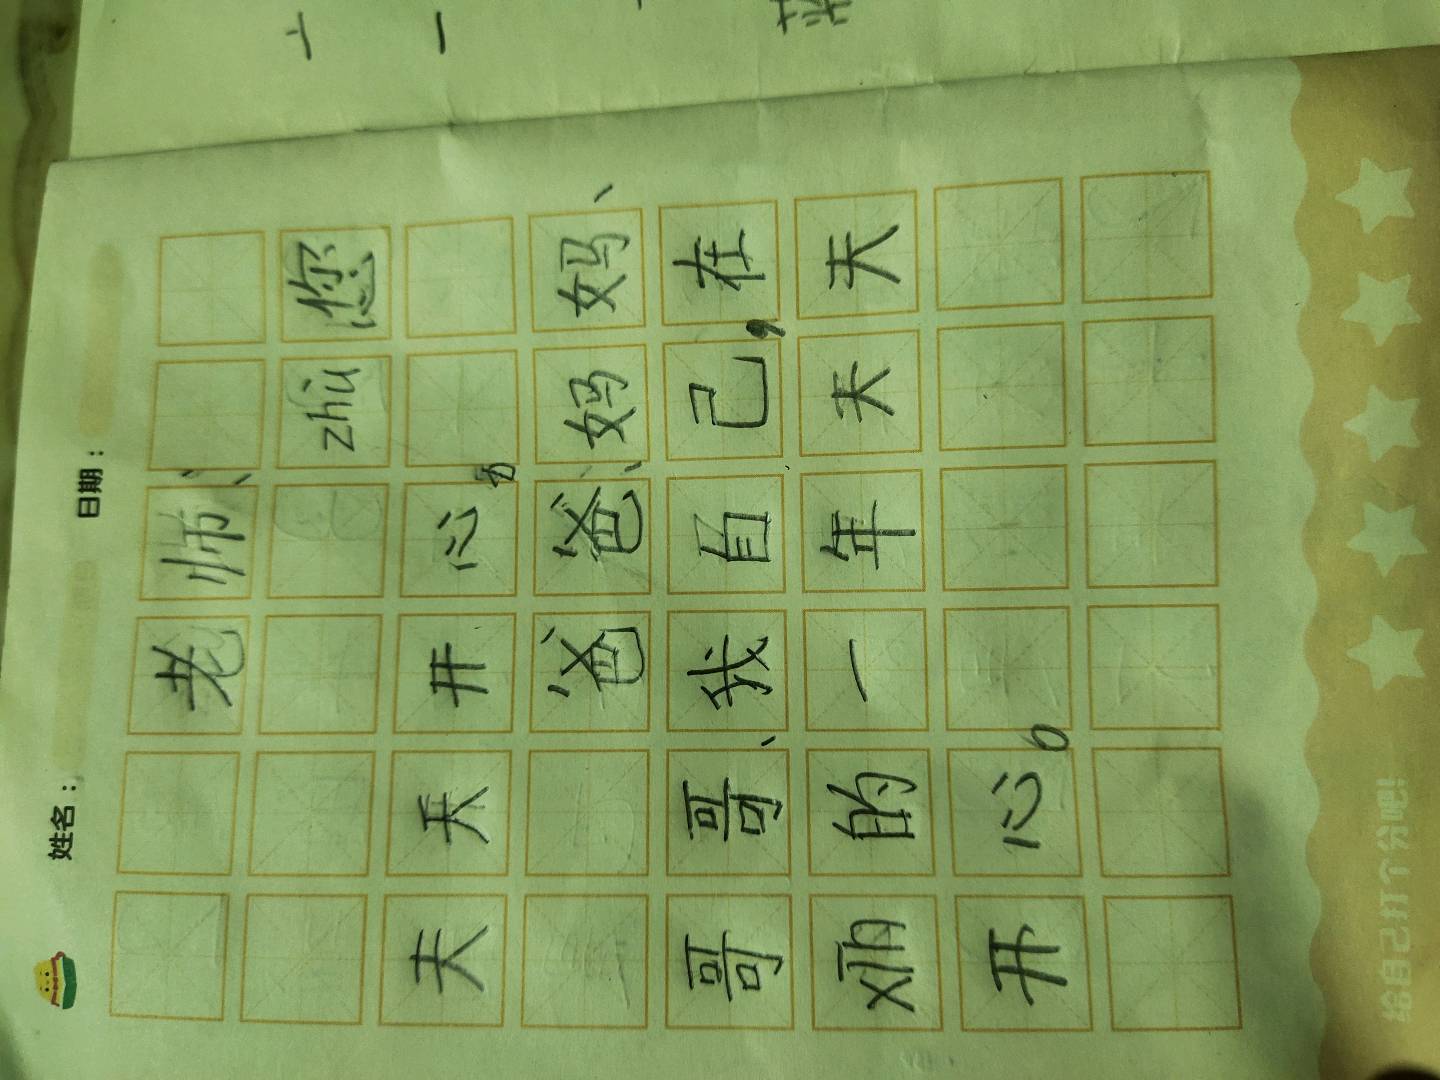 姓名: 日期:
老师:
zhù您
天天开心,
爸爸、妈妈、
哥哥、我自己,在
xīn的一年天天
开心。
给自己打个分吧!